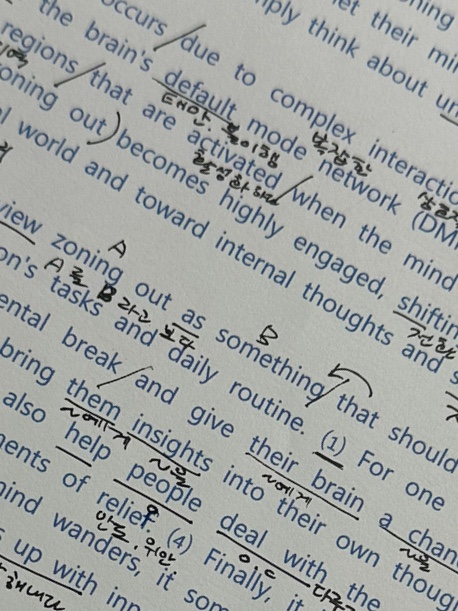 let their
think about
occurs / due to complex
복잡한
the brain's default mode network
태만. 불이행
regions / that are activated / when the mind
활성화하다
out) becomes highly engaged,
world and toward internal thoughts and
A B
view zoning out as something / that should
A를 B라고 보다
tasks and daily routine. (1) For one
break / and give their brain a
~에게 ~을
bring them insights into their own
~에게 ~을
also help people deal with the
of relief. (4) Finally, it
안도, 위안
wanders, it
up with